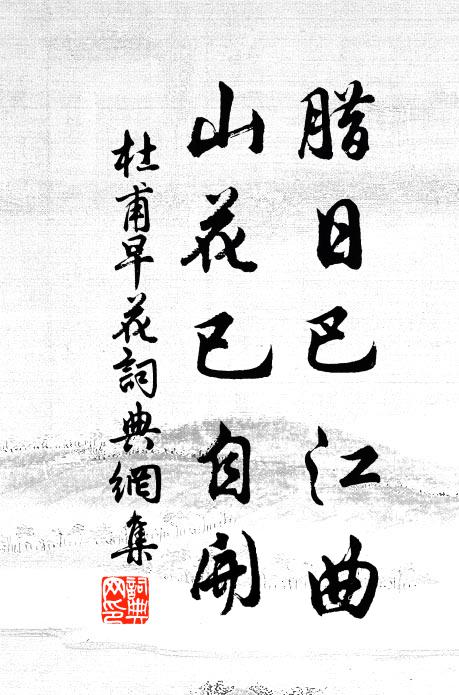 腊日巴江曲
山花已自開
杜甫早花詞典網集
詞典
网印